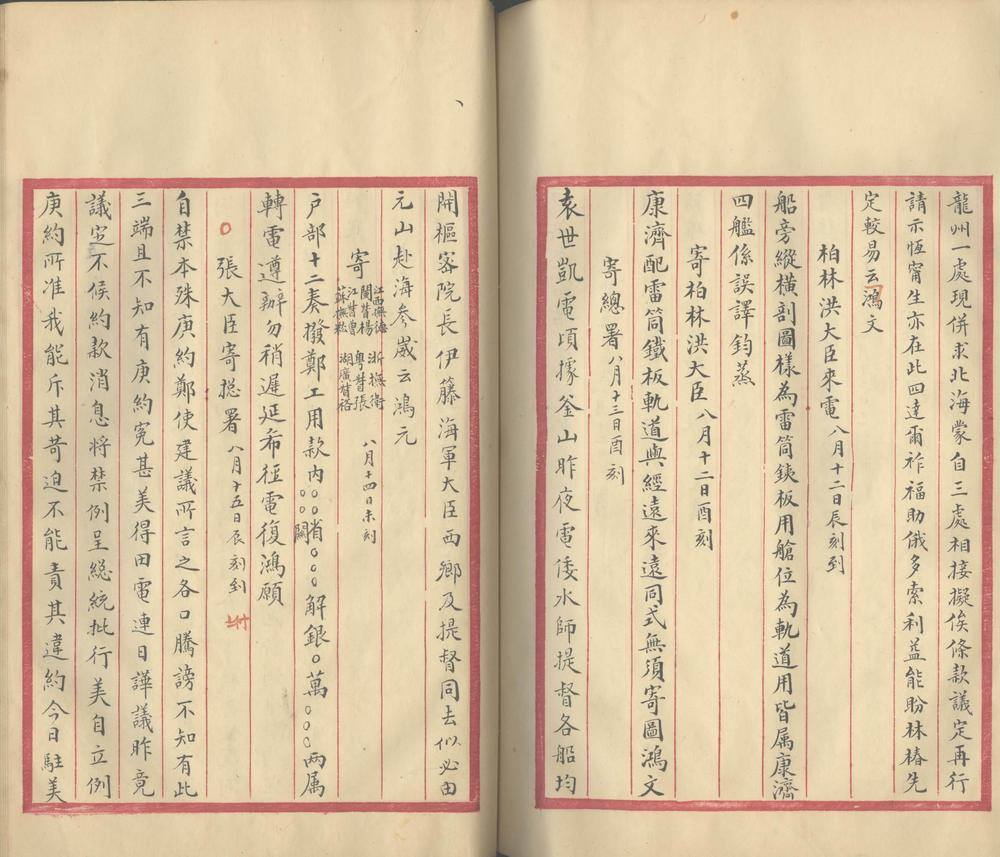 龍州一處現併求北海蒙自三處相接擬俟條款議定再行
請示恆甯生亦在此四達爾祚福助俄多索利益能盼林椿先
定較易云鴻文
柏林洪大臣來電八月十二日辰刻到
船旁縱橫剖圖樣為雷筒鐵板用艙位為軌道用皆属康濟
四艦係誤譯鈞蒸
寄柏林洪大臣八月十二日酉刻
康濟配雷筒鐵板軌道與經遠來遠同式無須寄圖鴻文
寄總署八月十三日酉刻
袁世凱電頃據釜山昨夜電倭水師提督各船均
開樞密院長伊藤海軍大臣西鄉及提督同去似必由
元山赴海參崴云鴻元
寄江西撫德 浙撫衛 閩督楊 粵督張 江督曾 湖廣督裕 蘇撫崧 八月十四日未刻
户部十二奏撥鄭工用款内○○省○○○解銀○萬○○○两属
○○關
轉電遵辦勿稍遲延希徑電復鴻願
○張大臣寄总署八月十五日辰刻到
自禁本殊庚約鄭使建議所言之各口騰謗不知有此
三端且不知有庚約寃甚美得田電連日譁議昨竟
議定不候約款消息将禁例呈総統批行美自立例
庚約所准我能斥其苛迫不能責其違約今日駐美